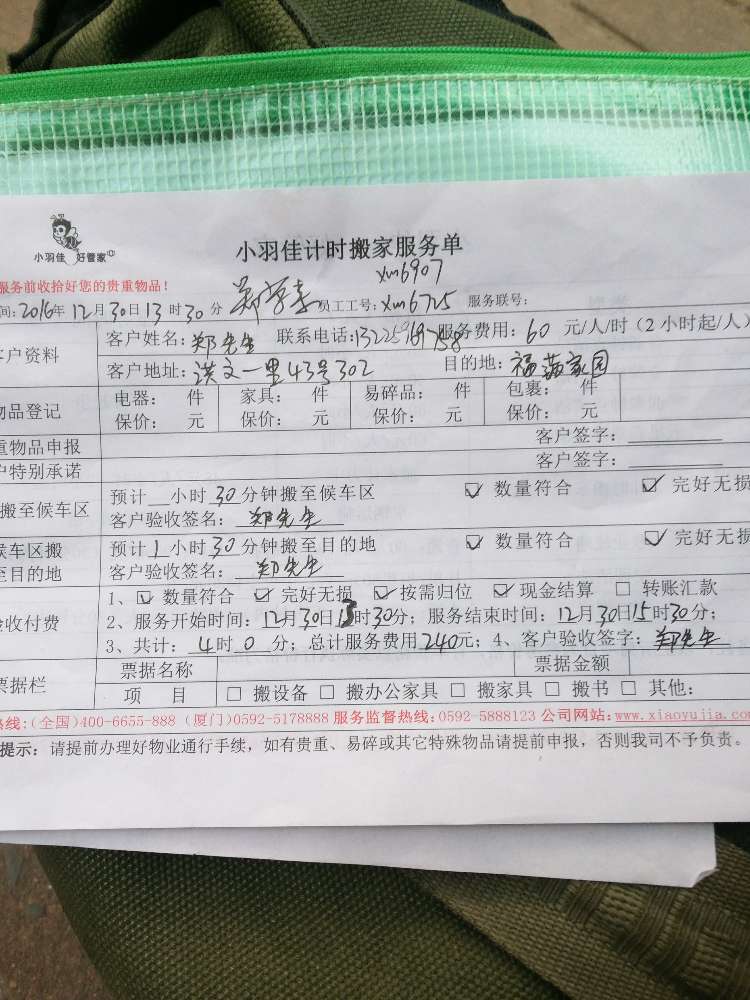 小羽佳 好管家
小羽佳计时搬家服务单
服务前收拾好您的贵重物品!
xm6907
间:2016年12月30日13时30分 员工工号:xm6725 服务联号:
客户资料 客户姓名:郑先生 联系电话: 服务费用:60元/人/时(2小时起/人)
客户地址:洪文一里43号302 目的地:
物品登记 电器: 件 家具: 件 易碎品: 件 包裹: 件
保价: 元 保价: 元 保价: 元 保价: 元
重物品申报 客户签字:
户特别承诺 客户签字:
搬至候车区 预计__小时30分钟搬至候车区 ☑ 数量符合 ☑ 完好无损
客户验收签名:郑先生
候车区搬 预计1小时30分钟搬至目的地 ☑ 数量符合 ☑ 完好无损
至目的地 客户验收签名:郑先生
1、☑ 数量符合 ☑ 完好无损 ☑ 按需归位 ☑ 现金结算 □ 转账汇款
验收付费 2、服务开始时间:12月30日13时30分; 服务结束时间:12月30日15时30分;
3、共计:4时0分; 总计服务费用240元; 4、客户验收签字:郑先生
票据栏 票据名称 票据金额
项 目 □ 搬设备 □ 搬办公家具 □ 搬家具 □ 搬书 □ 其他:
热线:(全国)400-6655-888 (厦门)0592-5178888 服务监督热线:0592-5888123 公司网站:www.xiaoyujia.com
提示:请提前办理好物业通行手续,如有贵重、易碎或其它特殊物品请提前申报,否则我司不予负责。